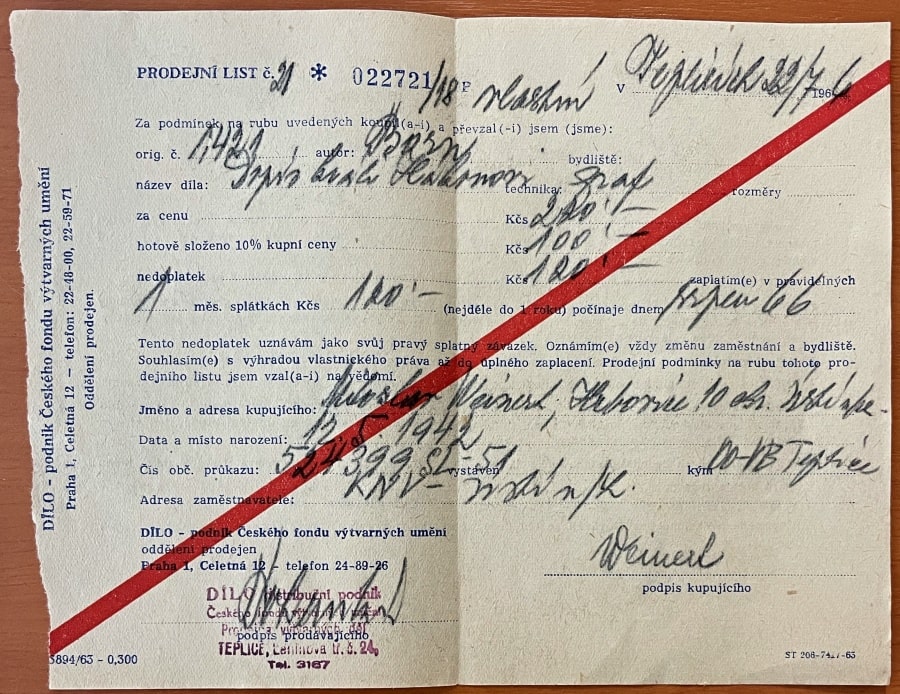 DÍLO - podnik Českého fondu výtvarných umění
Praha 1, Celetná 12 — telefon: 22-48-00, 22-59-71
Oddělení prodejen.
PRODEJNÍ LIST č. 21 * 022721/18 vlastní
V Teplicích 22/7 1966
Za podmínek na rubu uvedených koupil(a-i) a převzal(-i) jsem (jsme):
orig. č. 1.421 autor: Born bydliště:
název díla: Dopis technika: graf rozměry
za cenu Kčs 220'-
hotově složeno 10% kupní ceny Kčs 100'-
nedoplatek Kčs 120'- zaplatím(e) v pravidelných
1 měs. splátkách Kčs 120'- (nejdéle do 1 roku) počínaje dnem srpen 66
Tento nedoplatek uznávám jako svůj pravý splatný závazek. Oznámím(e) vždy změnu zaměstnání a bydliště.
Souhlasím(e) s výhradou vlastnického práva až do úplného zaplacení. Prodejní podmínky na rubu tohoto pro-
dejního listu jsem vzal(a-i) na vědomí.
Jméno a adresa kupujícího: Miloslav Weinert, Habrovice 10 okr. Ústí n/L.
Data a místo narození: 12.5. 1942
Čís obč. průkazu: 524399 SL-51 vystaven kým OO-VB Teplice
Adresa zaměstnavatele: KNV - Ústí n/L.
DÍLO - podnik Českého fondu výtvarných umění
oddělení prodejen
Praha 1, Celetná 12 — telefon 24-89-26
Weinert
podpis kupujícího
DÍLO distribuční podnik
Českého fondu výtvarných umění
Prodejna výtvarných děl
podpis prodávajícího
TEPLICE, Leninova tř. č. 24,
Tel. 3167
3894/63 - 0,300
ST 208-7427-63